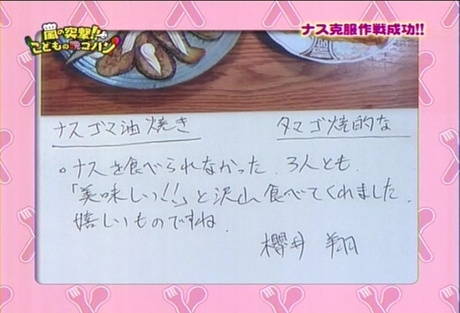 嵐の突撃!!
こどもの晩ゴハン
ナス克服作戦成功!!
ナスゴマ油焼き
タマゴ焼的な
。ナスを食べられなかった 3人とも、
「美味しいっ!!」と沢山食べてくれました。
嬉しいものですね。
櫻井 翔